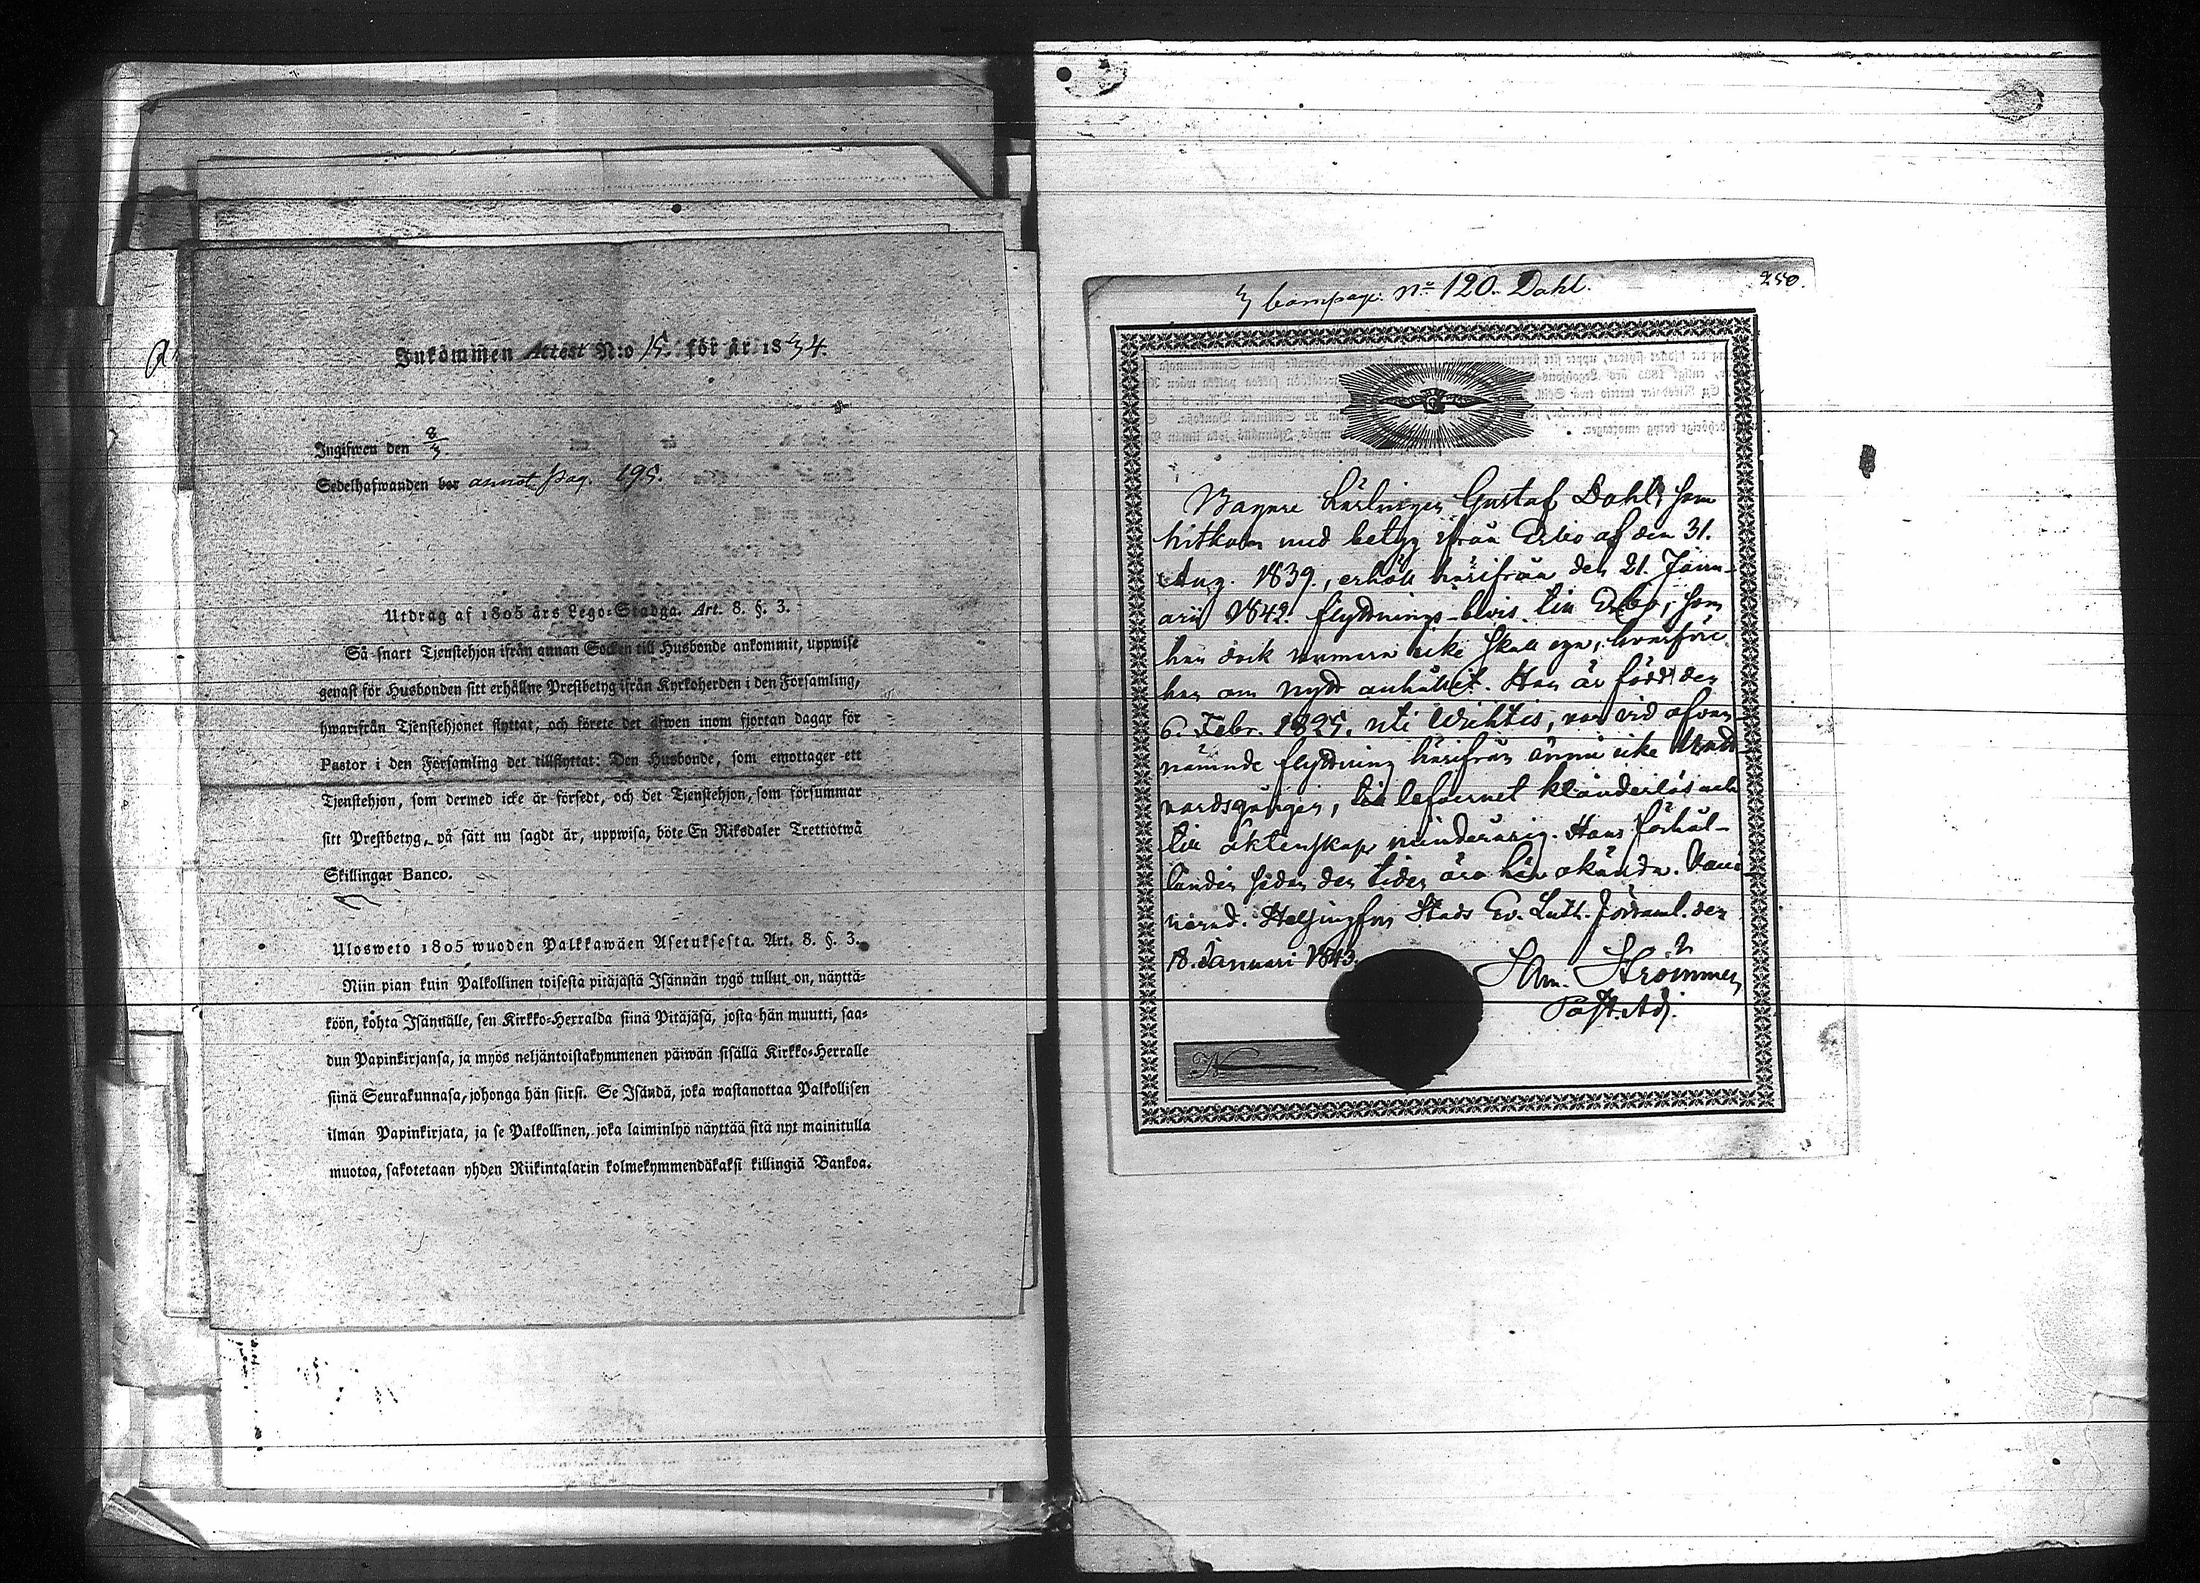 Inkommen Attest N:o 15. för år 1834.
Ingifwen den 8/3
Sedelhafwanden bor annot. pag. 195.
Utdrag af 1805 års Lego-Stadga. Art. 8. §. 3.
Så snart Tjenstehjon ifrån annan Socken till Husbonde ankommit, uppwise
genast för Husbonden sitt erhållne Prestbetyg ifrån Kyrkoherden i den Församling,
hwarifrån Tjenstehjonet flyttat, och förete det äfwen inom fjortan dagar för
Pastor i den Församling det tillflyttat: Den Husbonde, som emottager ett
Tjenstehjon, som dermed icke är försedt, och det Tjenstehjon, som försummar
sitt Prestbetyg, på sätt nu sagdt är, uppwisa, böte En Riksdaler Trettiotwå
Skillingar Banco.
Ulosweto 1805 wuoden Palkkawäen Asetuksesta. Art. 8. §. 3.
Niin pian kuin Palkollinen toisesta pitäjästä Isännän tygö tullut on, näyttä-
köön, kohta Isännälle, sen Kirkko-Herralda siinä Pitäjäsä, josta hän muutti, saa-
dun Papinkirjansa, ja myös neljäntoistakymmenen päiwän sisällä Kirkko-Herralle
siinä Seurakunnasa, johonga hän siirsi. Se Isändä, joka wastanottaa Palkollisen
ilman Papinkirjata, ja se Palkollinen, joka laiminlyö näyttää sitä nyt mainitulla
muotoa, sakotetaan yhden Riikintalarin kolmekymmendäkaksi killingiä Bankoa.
No 120. Dahl.
250.
Bagare Lärlingen Gustaf Dahl, som
hitkom med betyg ifrån Esbo af den 31.
Aug. 1839, erhöll härifrån den 21. Janu-
arii 1842 flyttnings-bevis till Esbo, som
han dock numera icke skall ega, hvarföre
han om nytt anhållit. Han är född den
6. Febr. 1825. uti Wichtis, var vid ofvan-
nämnde flyttning härifrån ännu icke Natt-
vardsgången, till lefvernet klanderlös och
till äktenskap minderårig. Hans förhål-
landen sedan den tiden äro här okända.
Helsingfors Stads Ev. Luth. Församl. den
18. Januari 1843.
Strömmer
Past. Adj.
N